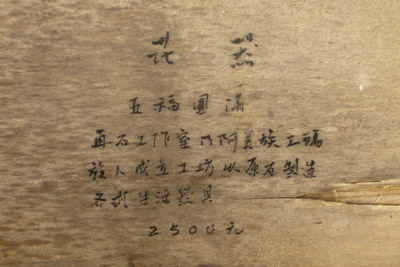 花 器
五福圓滿
石工作室乃阿美族工
族人成立工坊以原石製造
各 生活器具
2500元